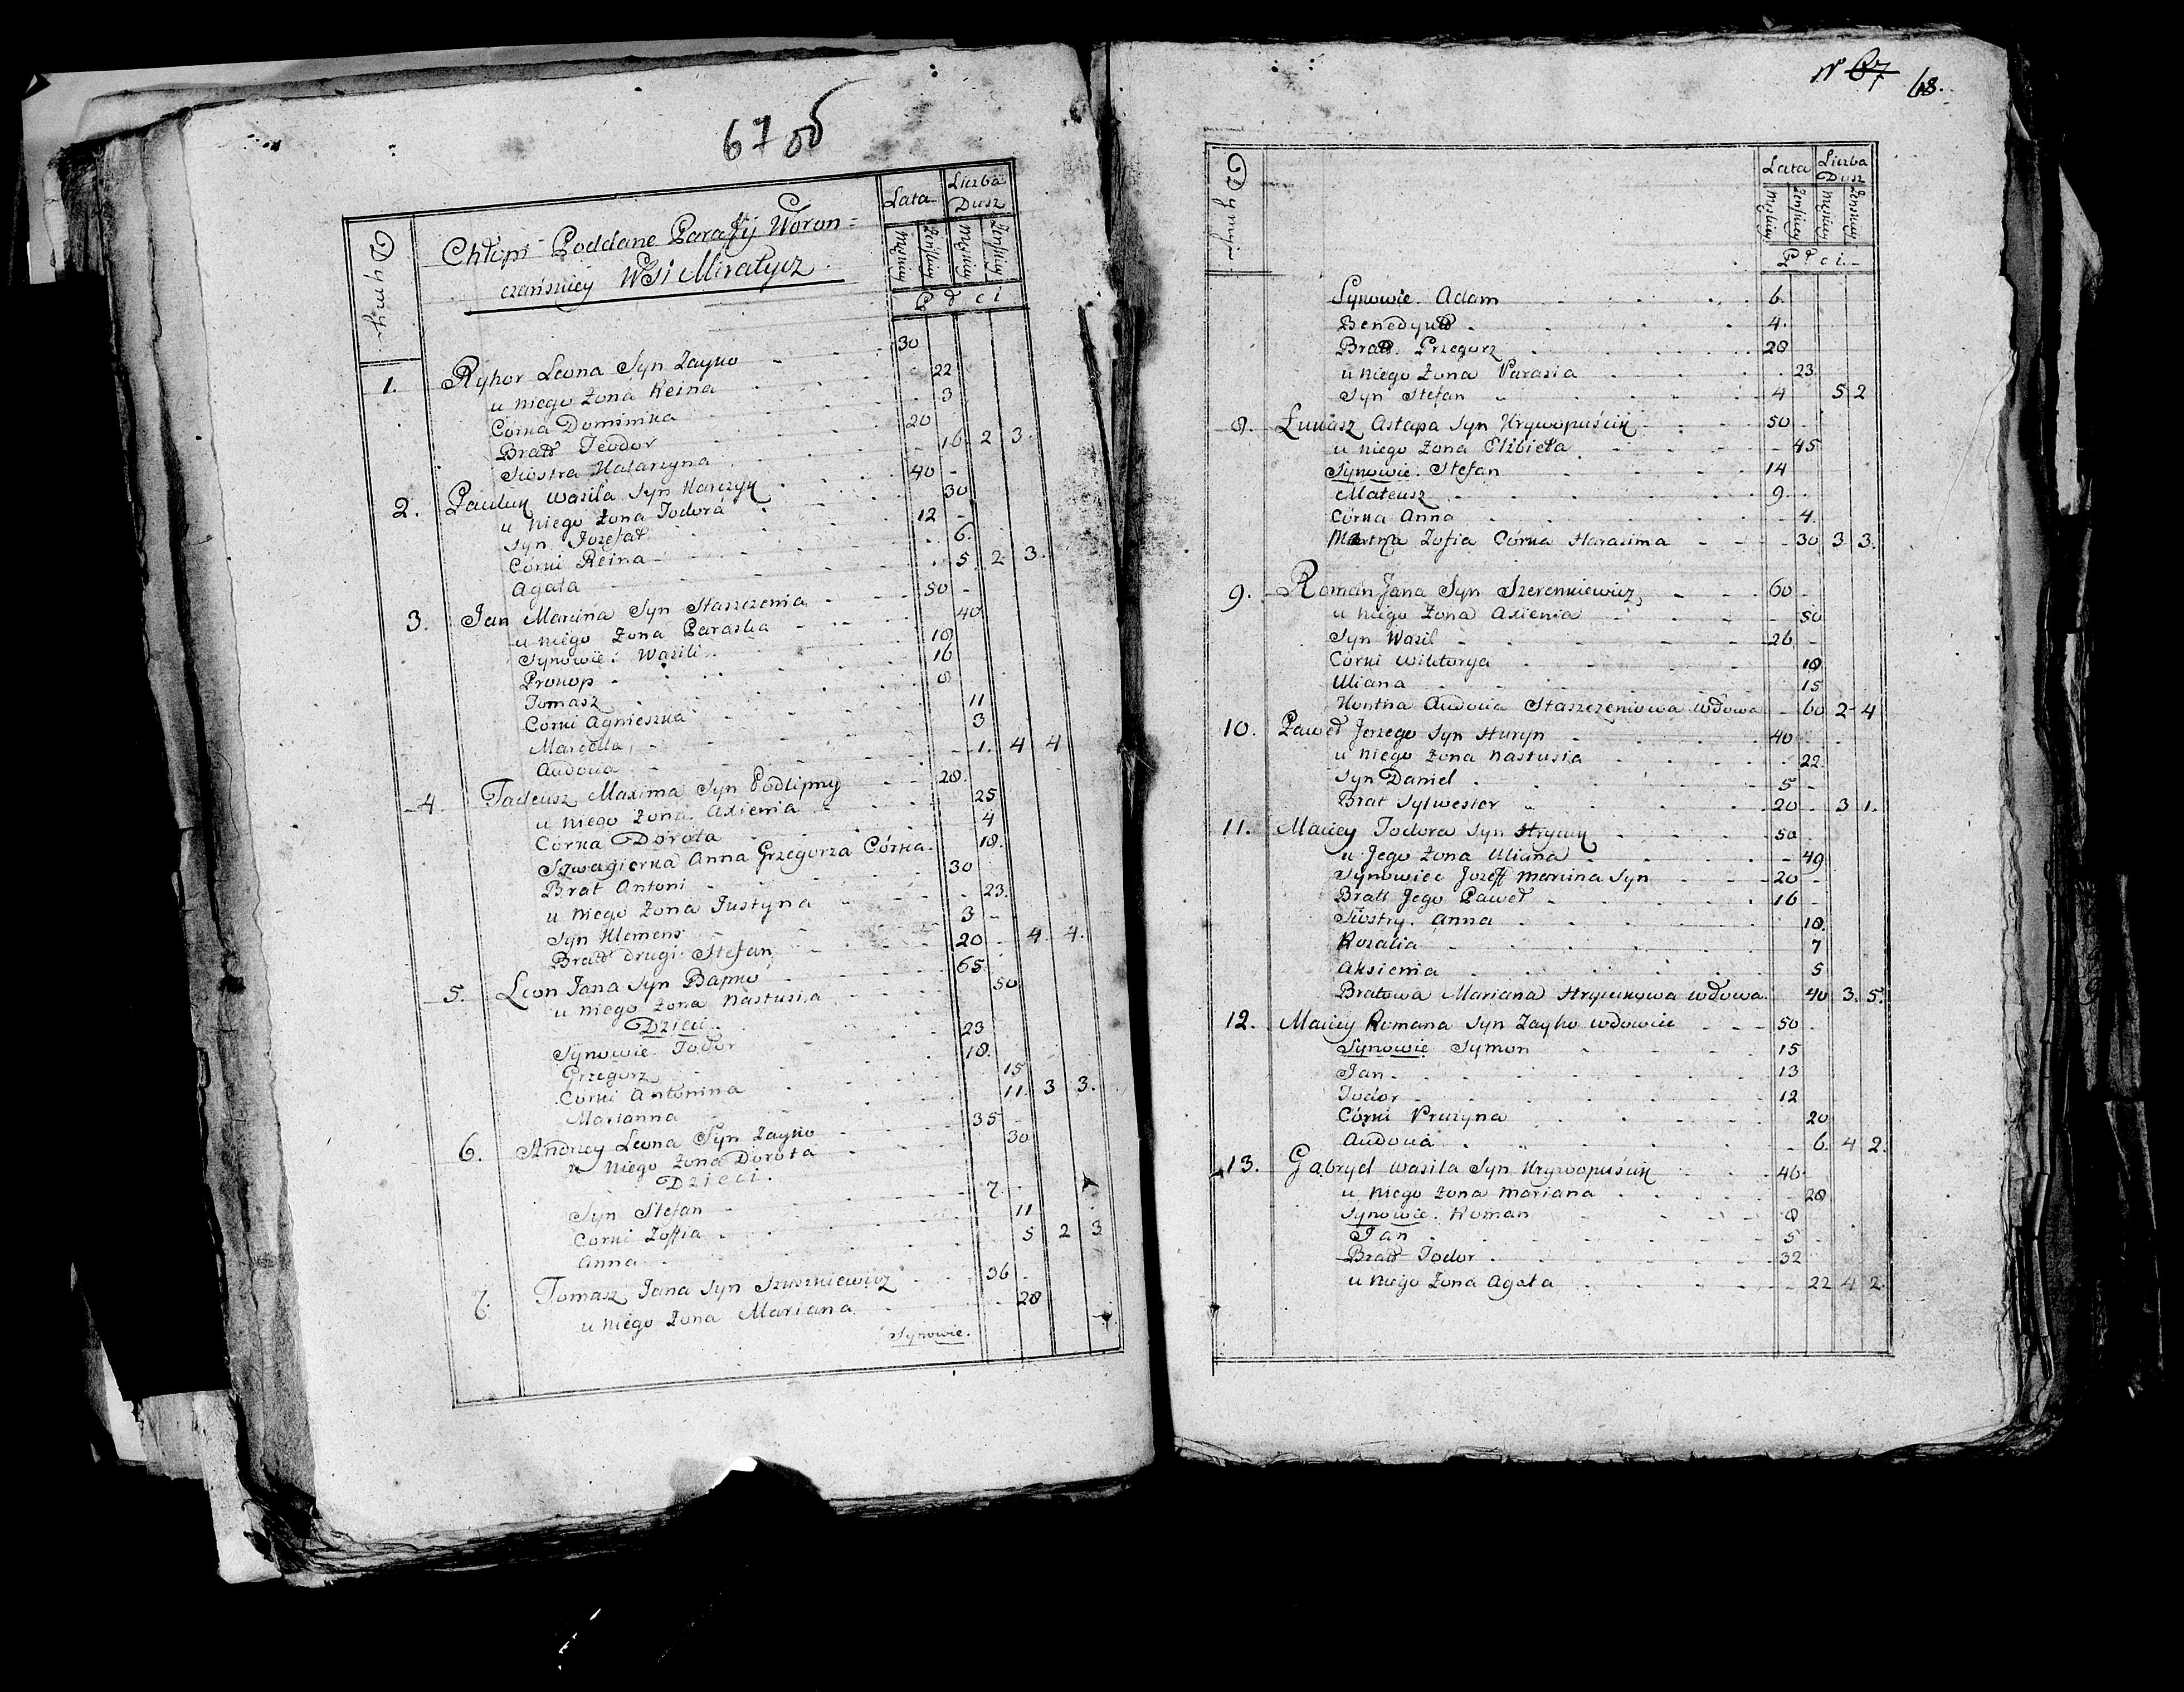 67 об
Dymy
Chłopi Poddane Parafÿ Woron=
czańskiey Wsi Miratycz
Lata
Liczba Dusz
Męskiey Żeńskiey Męskiey Żeńskiey
Płci
1. Ryhor Leona Syn Zayko 30
u niego Żona Reina 22
Córka Dominika 3
Bratt Teodor 20
Siostra Katarzyna 16 2 3
2. Pawluk Wasila Syn Karczyk 40
u niego Żona Todora 30
Syn Jozefat 12
Córki Reina 6
Agata 5 2 3
3. Jan Marcina Syn Staszczenia 50
u niego Żona Paraska 40
Synowie: Wasili 18
Prokop 16
Tomasz 8
Córki Agnieszka 11
Marcella 3
Audocia 1 4 4
4. Tadeusz Maxima Syn Podlipny 28
u niego Żona Axienia 25
Córka Dorota 4
Szwagierka Anna Grzegorza Córka 18
Brat Antoni 30
u niego Żona Justyna 23
Syn Klemens 3
Bratt drugi Stefan 20 4 4
5. Leon Jana Syn Bapko 65
u niego Żona Nastusia 50
Dzieci
Synowie Todor 23
Grzegorz 18
Córki Antonina 15
Marianna 11 3 3
6. Andrzey Leona Syn Zayko 35
u niego Żona Dorota 30
Dzieci
Syn Stefan 7
Córki Zoffia 11
Anna 5 2 3
7. Tomasz Jana Syn Szuszkiewicz 36
u niego Żona Mariana 28
Synowie.
N 67 68.
Dymy
Lata
Liczba Dusz
Męskiey Żeńskiey Męskiey Żeńskiey
Płci
Synowie Adam 6
Benedykt 4
Bratt Grzegorz 28
u niego Żona Parasia 23
Syn Stefan 4 5 2
8. Łukasz Astapa Syn Krywopuścik 50
u niego Żona Elżbieta 45
Synowie Stefan 14
Mateusz 9
Córka Anna 4
Zofia Córka Harasima 30 3 3
9. Roman Jana Syn Szerenkiewicz 60
u niego Żona Axienia 50
Syn Wasil 26
Córki Wiktorya 18
Uliana 15
Audocia Staszczeniowa wdowa 60 2 4
10. Paweł Jerzego Syn Huryn 40
u niego Żona Nastusia 22
Syn Daniel 5
Brat Sylwester 20 3 1
11. Maciey Todora Syn Hrycuk 50
u Jego Żona Uliana 49
Synowiec Jozeff Marcina Syn 20
Bratt Jego Paweł 16
Siostry Anna 18
Rozalia 7
Aksienia 5
Bratowa Mariana Hrycukowa wdowa 40 3 5
12. Maciey Romana Syn Zayko wdowiec 50
Synowie Symon 15
Jan 13
Todor 12
Córki Pruzyna 20
Audocia 6 4 2
13. Gabryel Wasila Syn Krywopuścik 46
u niego Żona Mariana 28
Synowie Roman 8
Jan 5
Bratt Todor 32
u niego Żona Agata 22 4 2